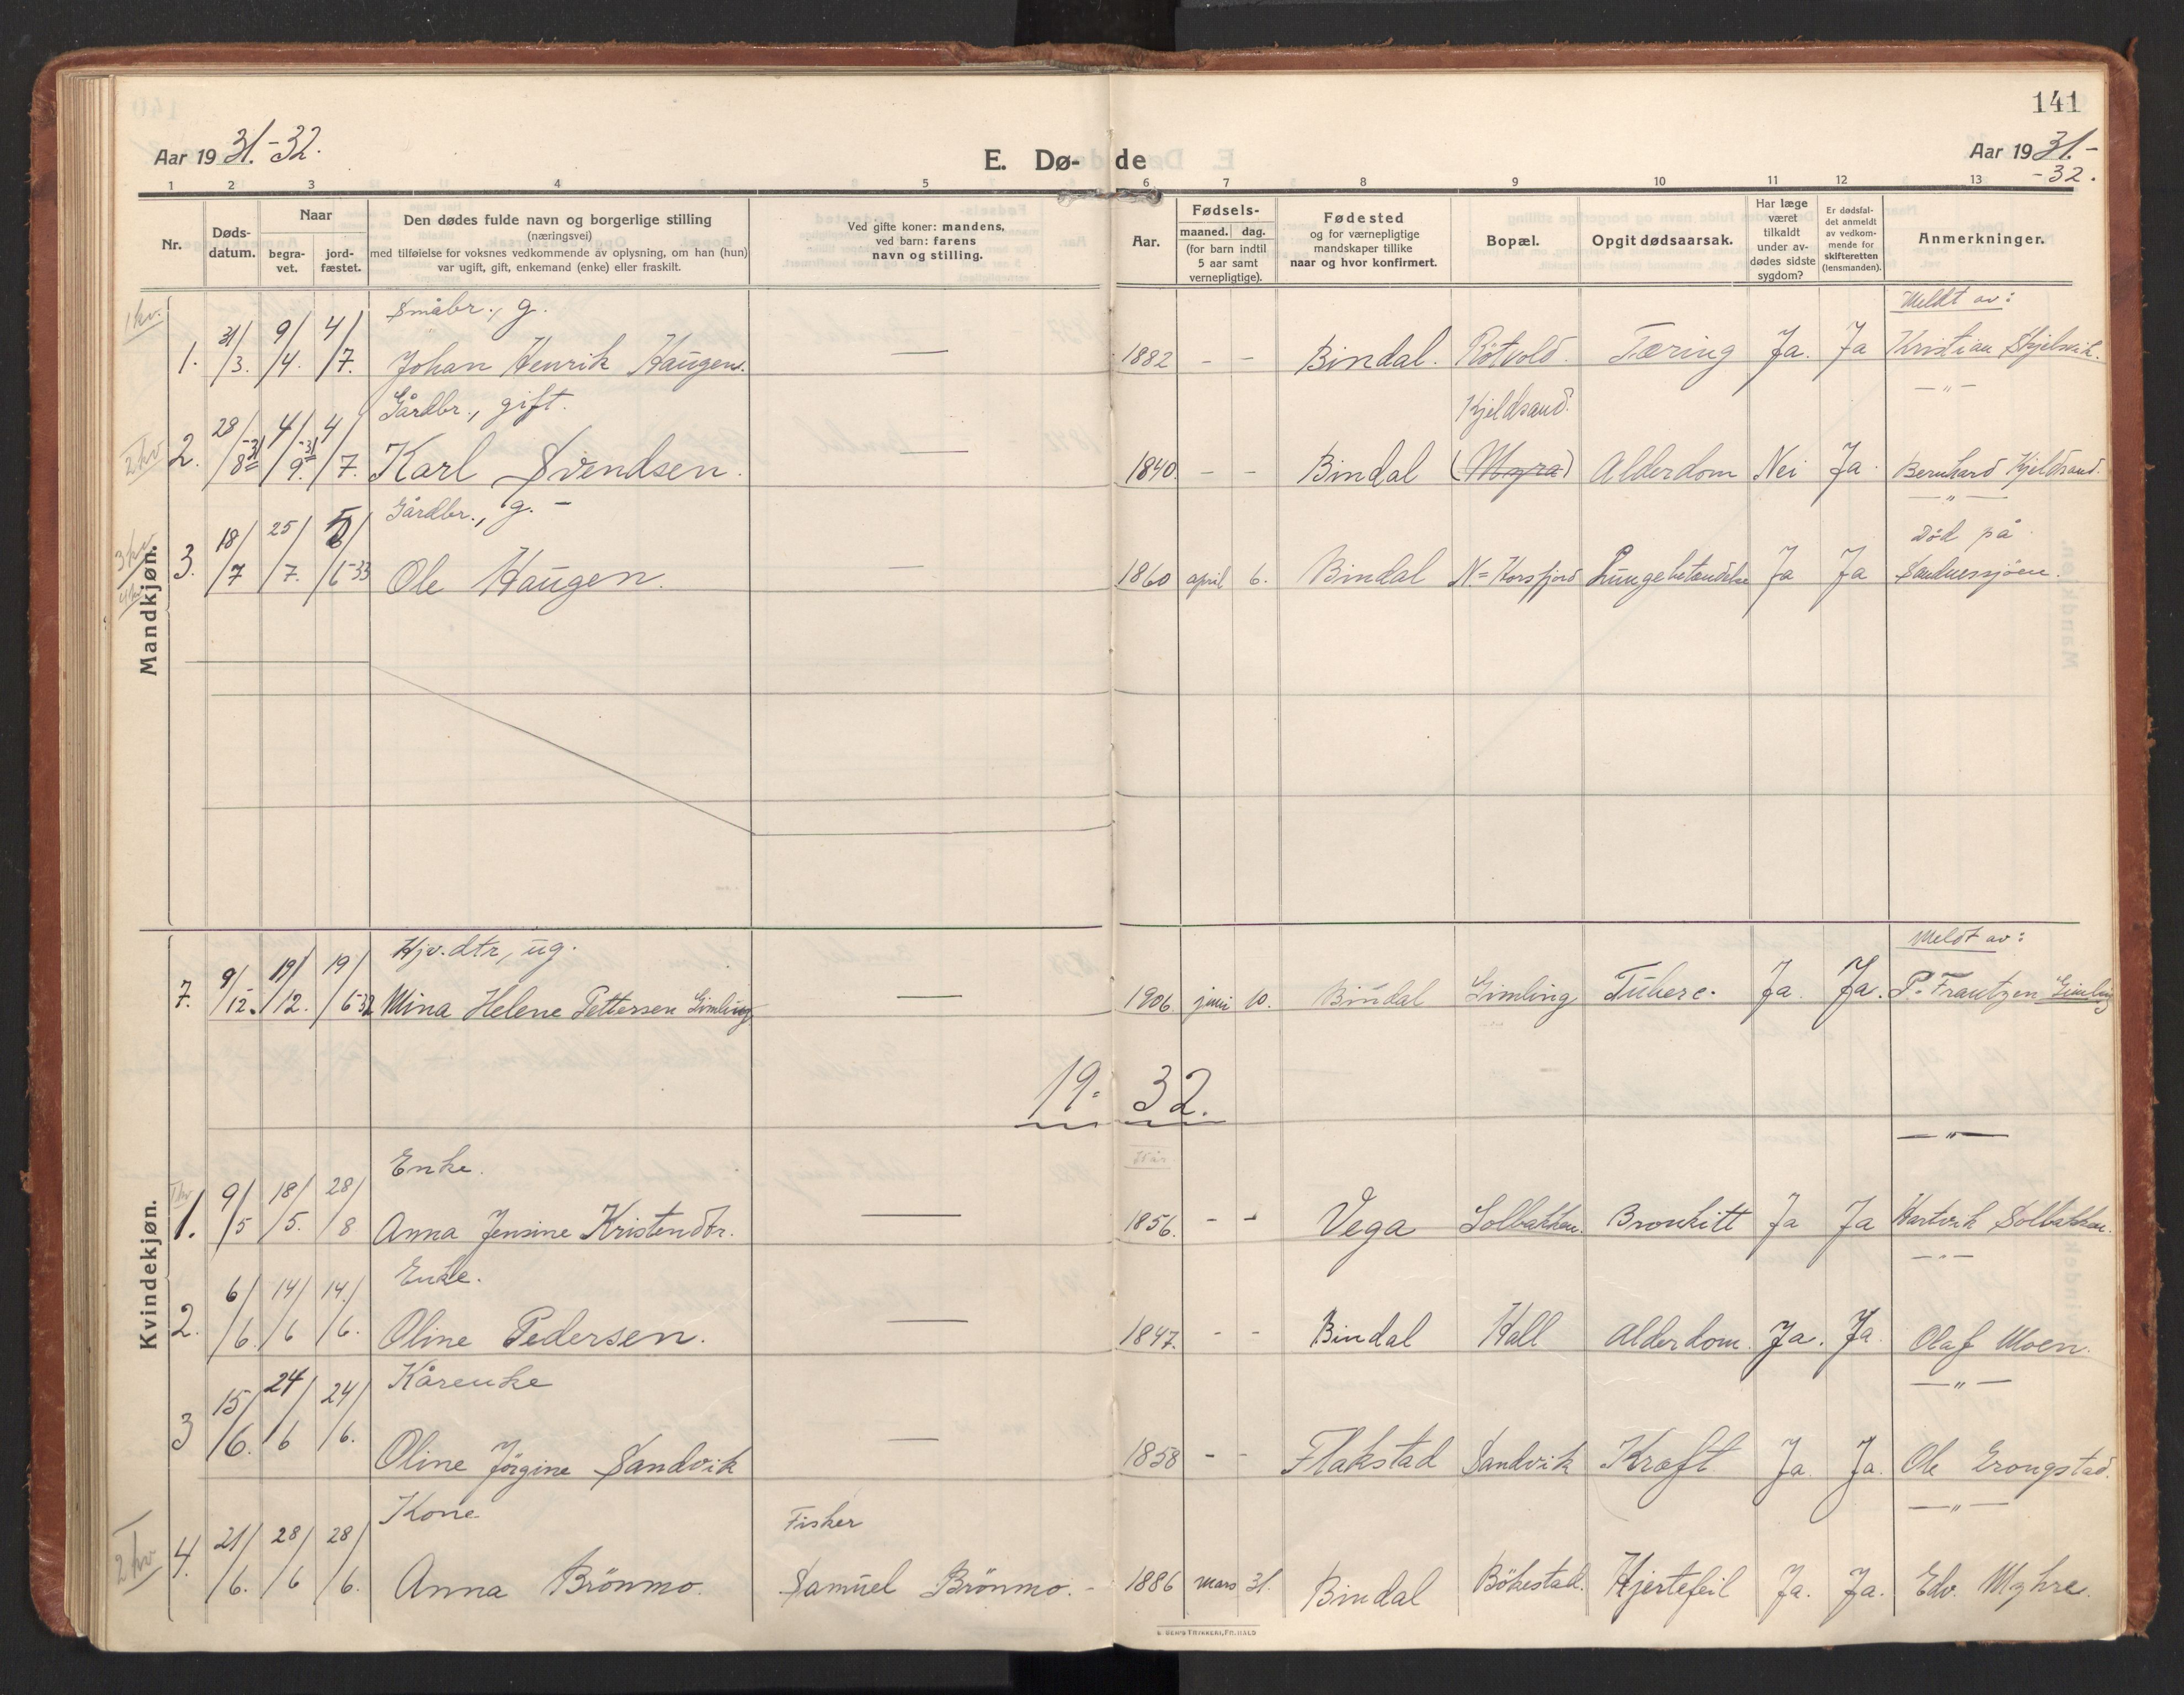 141
Aar 1931.-32.
E. Dø- de
Aar 1931.-
-32.
1 2 3 4 5 6 7 8 9 10 11 12 13
Nr.
Døds-
datum.
Naar
begra-
vet.
jord-
fæstet.
Den dødes fulde navn og borgerlige stilling
(næringsvei)
med tilføielse for voksnes vedkommende av oplysning, om han (hun)
var ugift, gift, enkemand (enke) eller fraskilt.
Ved gifte koner: mandens,
ved barn: farens
navn og stilling.
Aar.
Fødsels-
maaned. dag.
(for barn indtil
5 aar samt
vernepligtige).
Fødested
og for værnepligtige
mandskaper tillike
naar og hvor konfirmert.
Bopæl.
Opgit dødsaarsak.
Har læge
været
tilkaldt
under av-
dødes sidste
sygdom?
Er dødsfal-
det anmeldt
av vedkom-
mende for
skifteretten
(lensmanden).
Anmerkninger.
Mandkjøn.
1 kv.
Småbr., g. Meldt av:
1. 31/3. 9/4. 4/7. Johan Henrik Haugen. — 1882 - - Bindal. Tæring Ja. Ja Kristian
Gårdbr., gift. Kjeldsand. -"-
2 kv
2. 28/8-31 4/9.-31 4/7. Karl Svendsen. — 1840. - - Bindal (Myra) Alderdom Nei Ja. Bernhard Kjeldsand.
Gårdbr., g. - -"-
Død på
3 kv
3. 18/7 25/7. /6-33 Ole Haugen. — 1860 april 6. Bindal N.=Horsfjord Lungebetændelse Ja Ja Sandnessjøen.
Kvindekjøn.
Hjv.dtr, ug. Meldt av:
7. 9/12. 19/12. 19/6-32 Mina Helene Pettersen Gimling — 1906. juni 10. Bindal Gimling Tuberc. Ja. Ja. P. Frantzen Gimling
19= 32.
-"-
Enke. 75 år
1 kv
1. 9/5 18/5. 28/8 Anna Jensine Kristendtr. — 1856. - - Vega Solbakken. Bronkitt Ja Ja Hartvik Solbakken.
Enke. -"-
2. 6/6. 14/6 14./6. Oline Pedersen. — 1847. - - Bindal Hall Alderdom. Ja. Ja. Olaf Moen.
Kårenke -"-
3 15/6. 24/6 24/6. Oline Jörgine Sandvik — 1858 - - Flakstad Sandvik Kræft. Ja. Ja. Ole
Kone Fisker -"-
2 kv
4. 21/6. 28/6 28/6. Anna Brönmo. Samuel Brönmo. - 1886 mars 31. Bindal Bökestad. Hjertefeil Ja. Ja. Edv. Myhre.